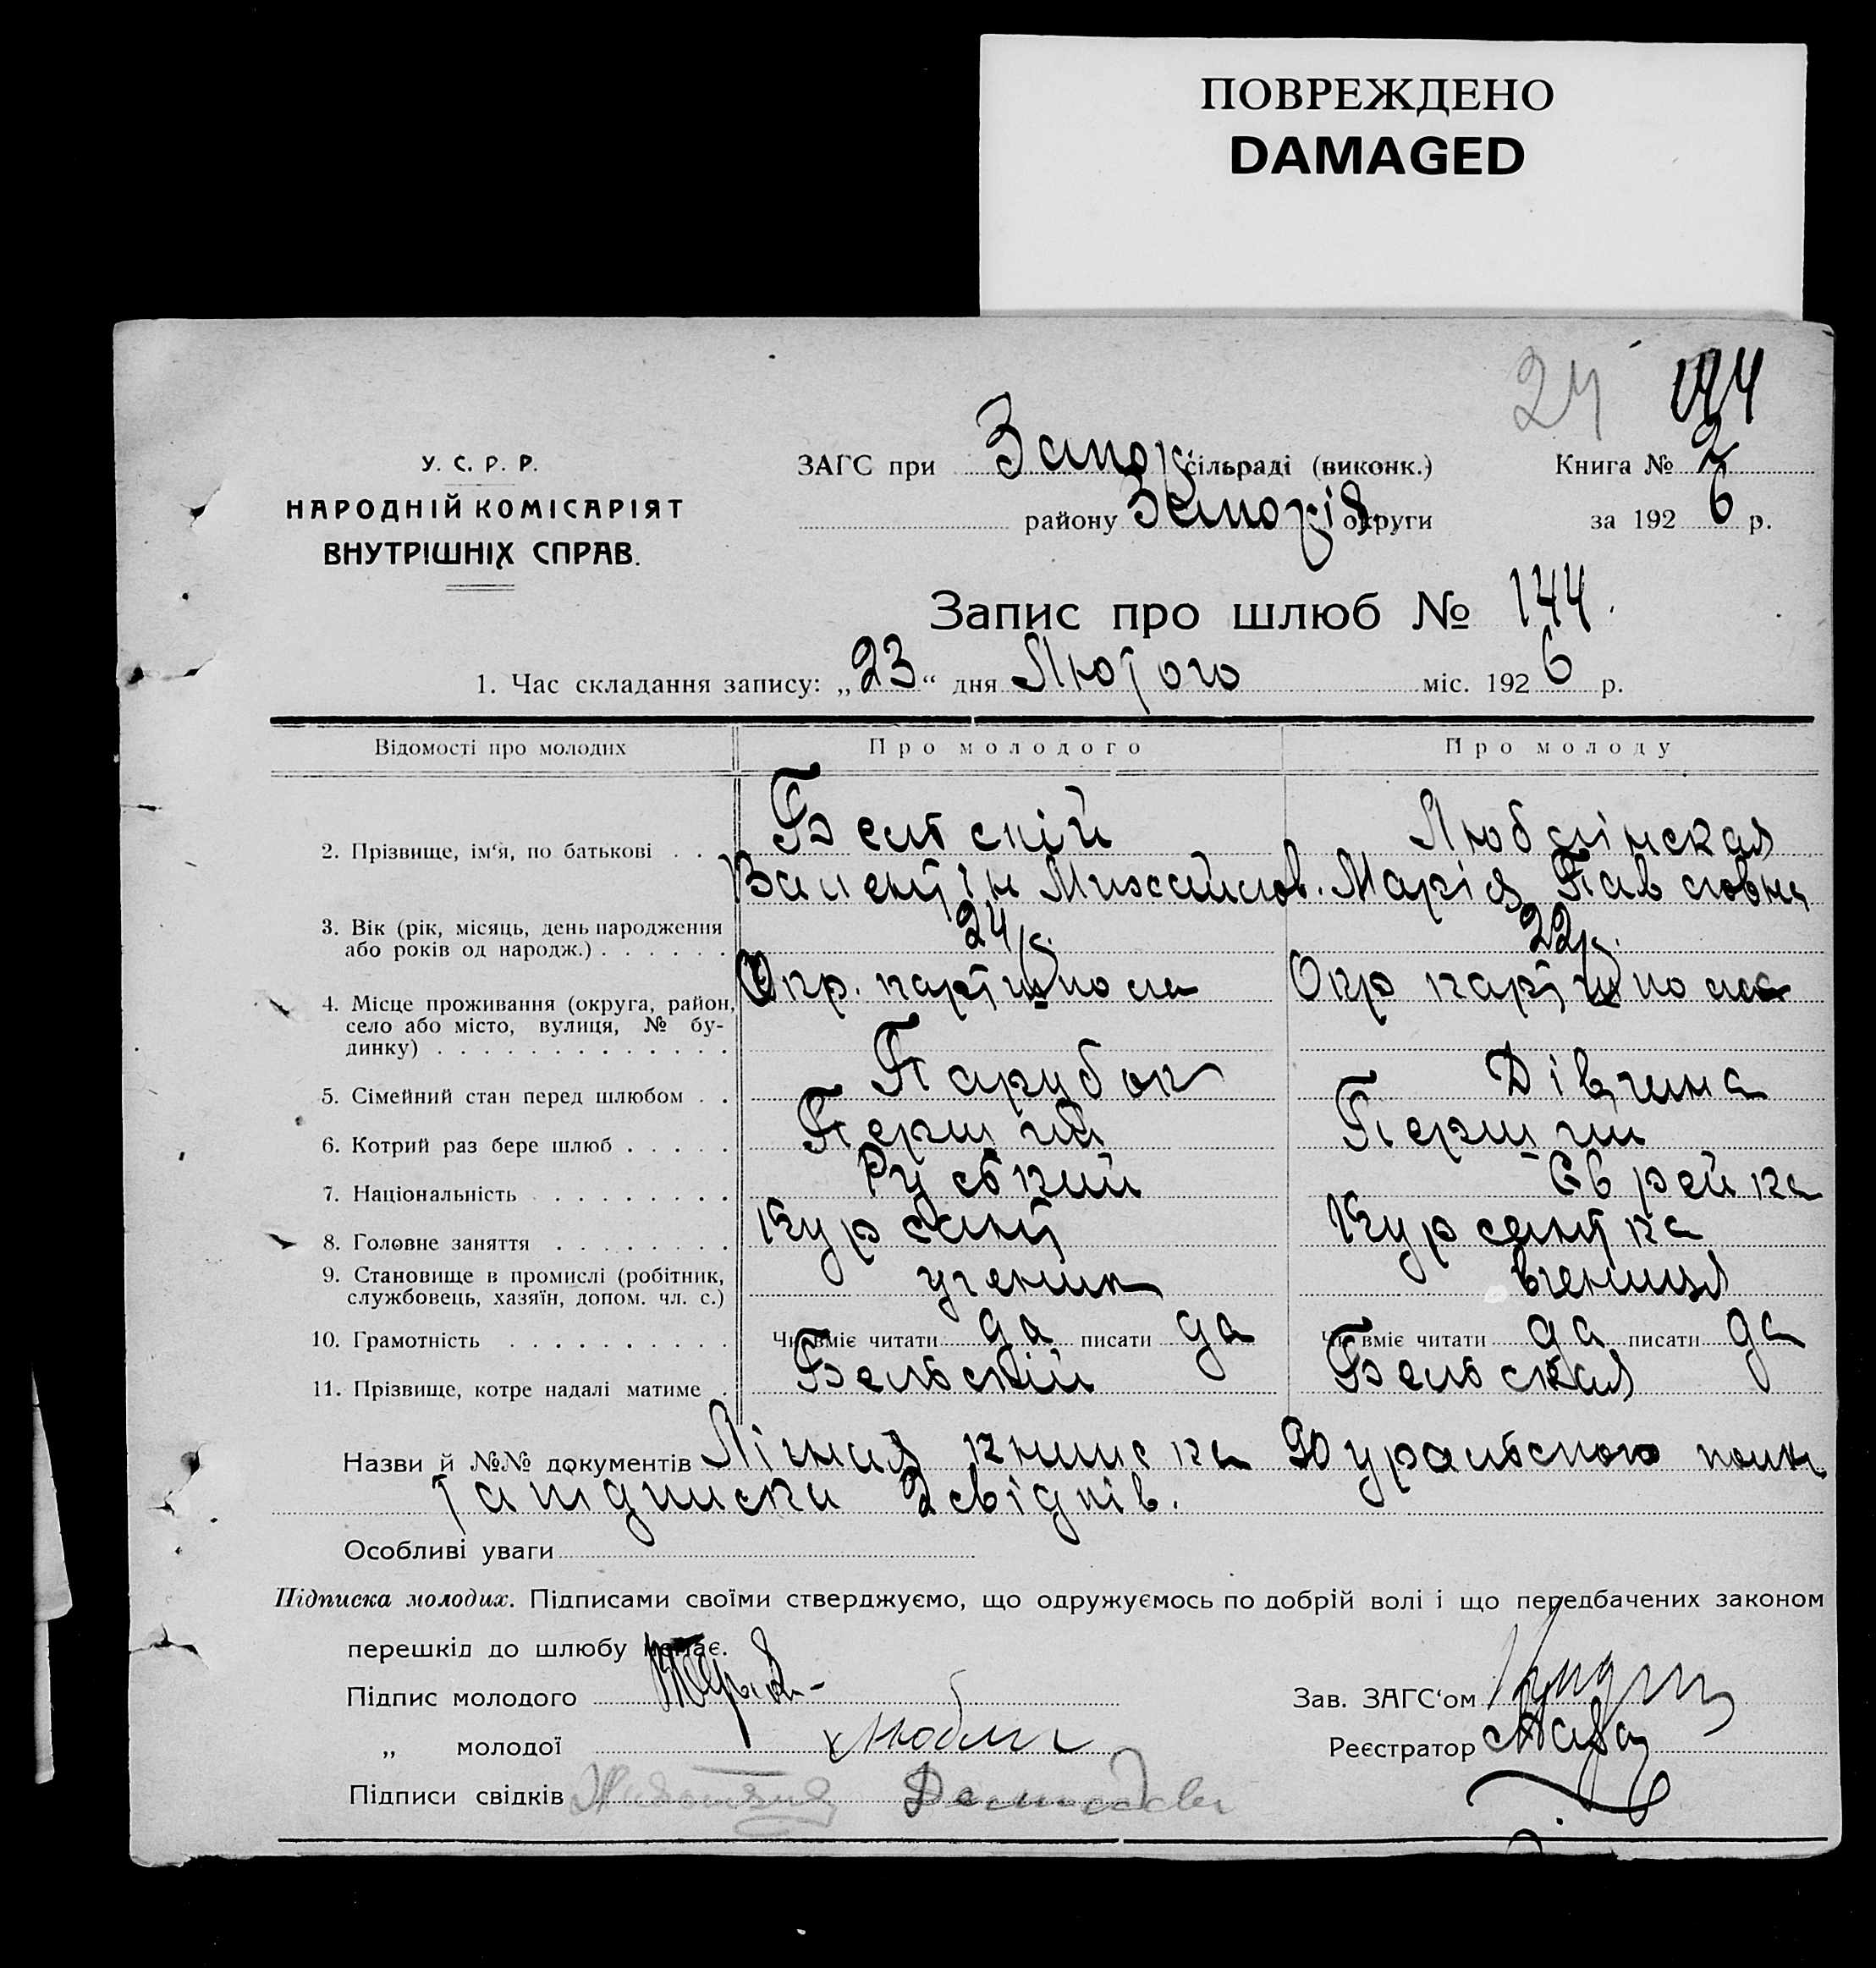 ПОВРЕЖДЕНО
DAMAGED
24 144
У. С. Р. Р.
НАРОДНІЙ КОМІСАРІЯТ
ВНУТРІШНІХ СПРАВ.
ЗАГС при Запор. сільраді (виконк.) Книга № 2
району Запоріз. округи за 1926 р.
Запис про шлюб № 144.
1. Час складання запису: „23“ дня Лютого міс. 1926 р.
Відомості про молодих Про молодого Про молоду
2. Прізвище, ім‘я, по батькові . . Бельскій Люблінская
Валентін Михайлов. Марія Павловна
3. Вік (рік, місяць, день народження або років од народж.) . . . . . . 24 р. 22 р.
4. Місце проживання (округа, район, село або місто, вулиця, № будинку) . . . . . . . . . . . . . Окр. партшкола Окр партшкола
5. Сімейний стан перед шлюбом . . Парубок Дівчина
6. Котрий раз бере шлюб . . . . . Перший Перший
7. Національність . . . . . . . . . Руський Єврейка
8. Головне заняття . . . . . . . . Курсант Курсантка
9. Становище в промислі (робітник, службовець, хазяїн, допом. чл. с.) ученик вчениця
10. Грамотність . . . . . . . . . . Чи вміє читати да писати да Чи вміє читати да писати да
11. Прізвище, котре надалі матиме . Бельскій Бельская
Назви й №№ документів Лічная книжка полка
та підписка 2 свідків.
Особливі уваги
Підписка молодих. Підписами своїми стверджуємо, що одружуємось по добрій волі і що передбачених законом
перешкід до шлюбу немає.
Підпис молодого Зав. ЗАГС‘ом
„ молодої Любли Реєстратор
Підписи свідків